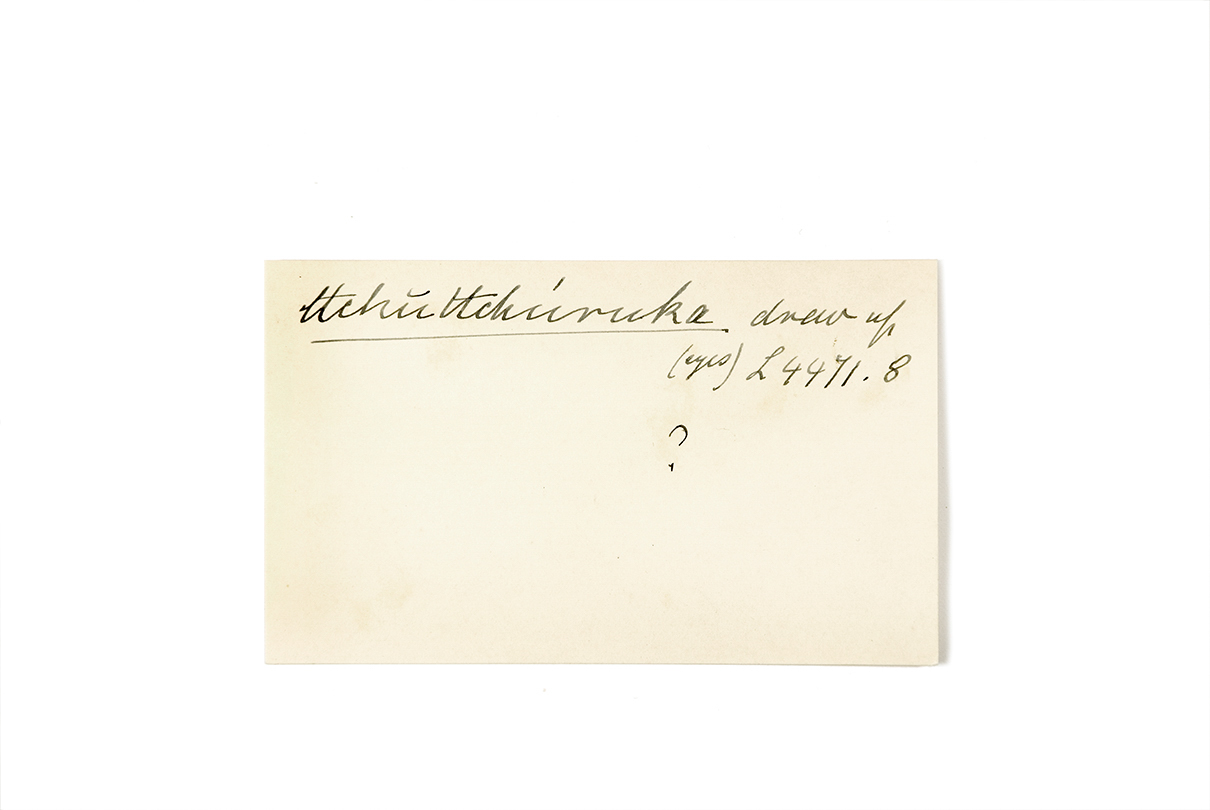 ttchŭttchúruka draw up
(eyes) L 4471.8
?